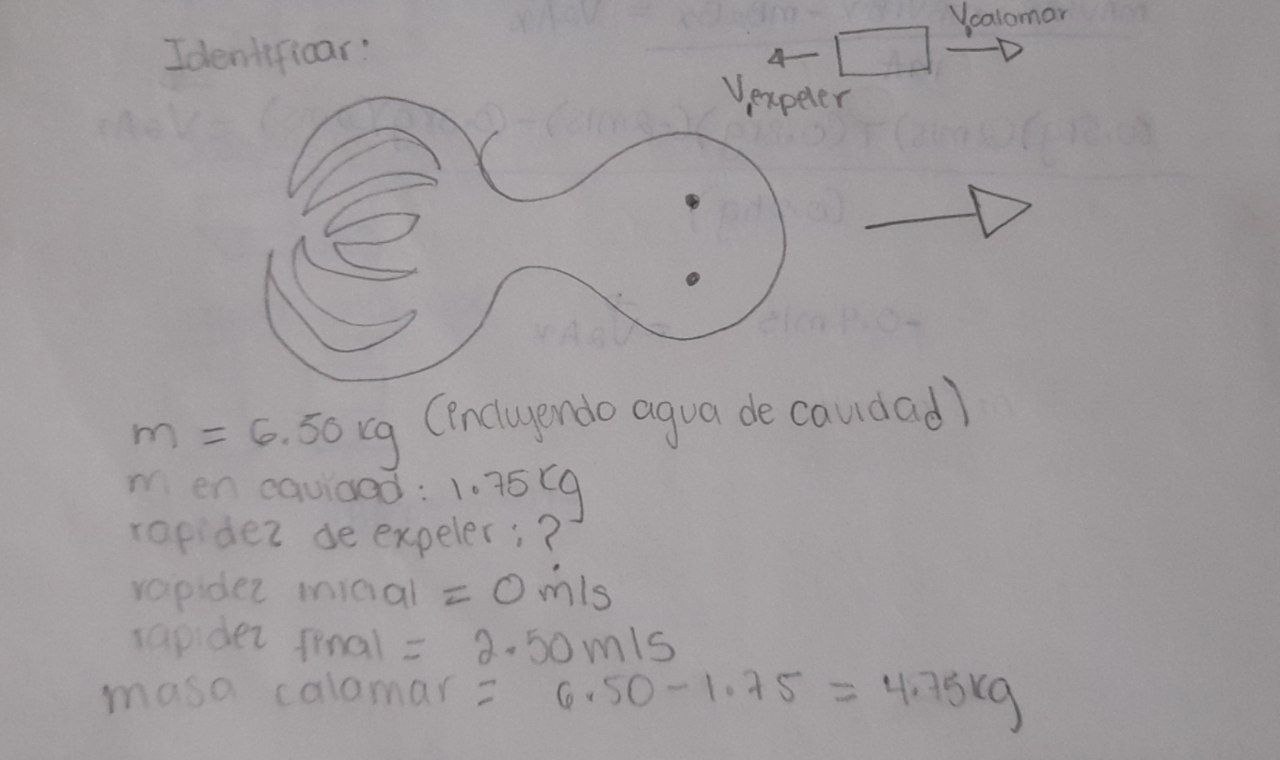 Identificar:
V,calamar
V,expeler
m = 6.50 kg (incluyendo agua de cavidad)
m en cavidad: 1.75 kg
rapidez de expeler: ?
rapidez inicial = 0 m/s
rapidez final = 2.50 m/s
masa calamar = 6.50 - 1.75 = 4.75 kg